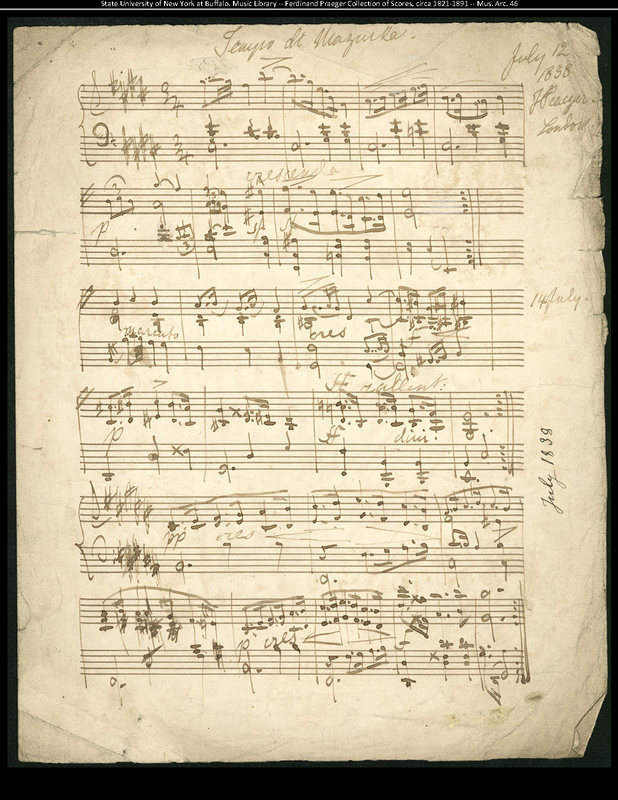 State University of New York at Buffalo. Music Library -- Ferdinand Praeger Collection of Scores, circa 1821-1891 -- Mus. Arc. 46
Tempo di Mazurka.
July 12
1838
FPraeger.
London.
3/4
3/4
crescendo
p
14 July.
marcato
cres
ff rallent:
p
ff
dim:
July 1838
pp
cres
p
cres